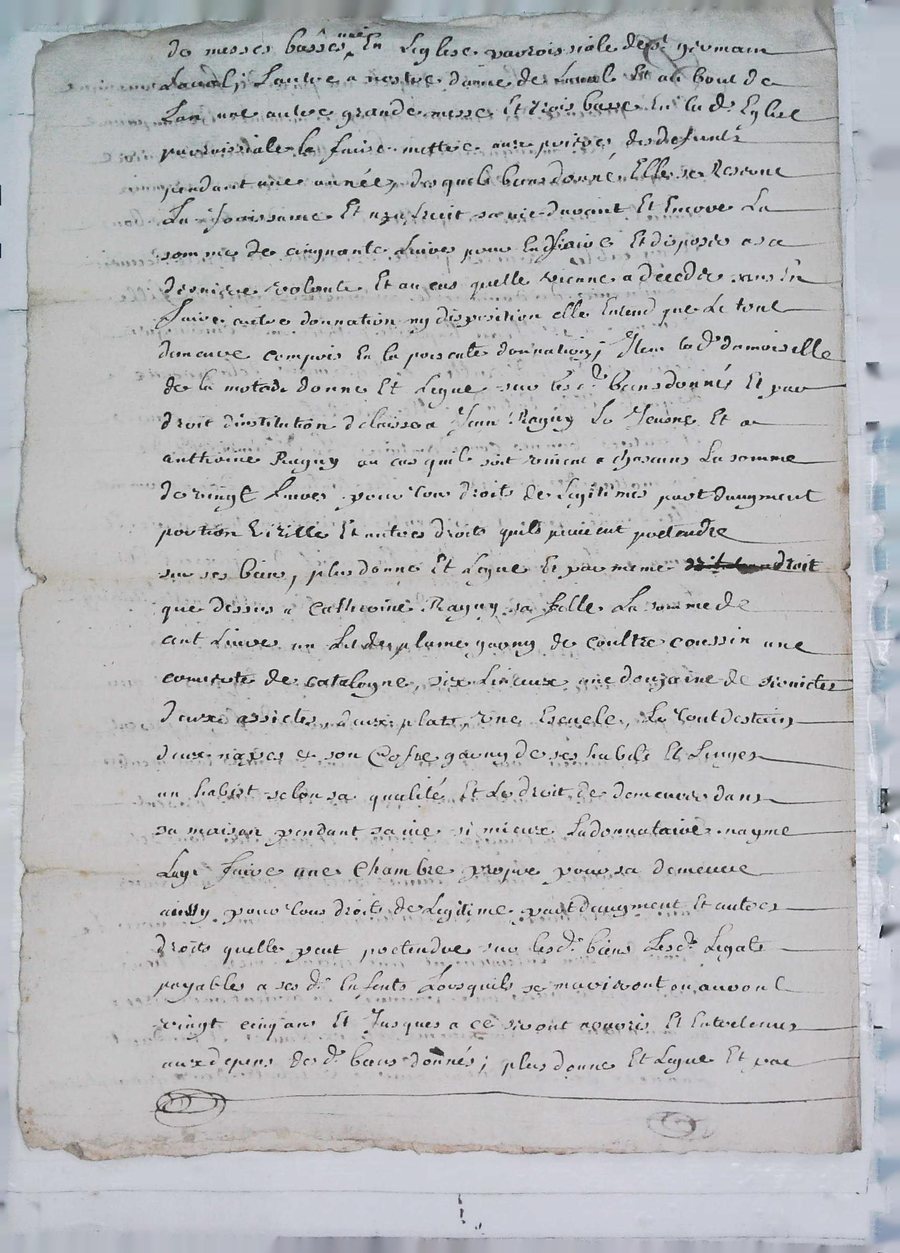 de messes basses une En Leglise parroissiale de st germain
Laval, Lautre a nostre dame de Laval Et au bout de
Lan une autre grande messe Et trois basse En lad. Eglise
parroissiale le faire mettre aux prières des defunts
pendant une année, desquels biens donné Elle se Reserve
La Jouissance Et uzufruit sa vie durant Et Encore La
somme de cinquante Livres pour En faire Et disposer a sa
derniere volonté Et au cas quelle vienne a deceder sans En
faire autre donnation ny disposition elle Entend que Le tout
demeure compris En la presente donnation; Item lad. demoiselle
de la motte donne Et Legue sur lesd. biens donnés Et par
droit dinstitution delaisse a Jean Raguy Le Jeusne Et a
anthoine Raguy au cas quil soit vivant a chascuns La somme
de vingt Livres pour tous droits de Legitimes part daugment
portion virille Et autres droits quils puicent pretendre
sur ses biens, plus donne Et Legue Et par meme droit
que dessus a Catherine Raguy sa fille La somme de
cent Livres un Lit de plume garny de coultre coussin une
couverte de catalogne, six Linceux une douzaine de serviettes
deux assietes, deux plats, une Escuele, Le tout destain
deux napes et son Cofre garny de ses habits Et Linges
un habist selon sa qualité Et Le droit de demeurer dans
sa maison pendant sa vie si mieux Ladonnataire nayme
Luy faire une Chambre propre pour sa demeure
aussy pour tous droits de Legitime part daugment Et autres
droits quelle peut pretendre sur lesd. biens Lesd. Legats
payables a sesd. Enfents Lorsquils se mariront ou auront
vingt cinq ans Et Jusques a ce seront nouris Et Entretenus
aux depens desd. biens donnés; plus donne Et Legue Et par